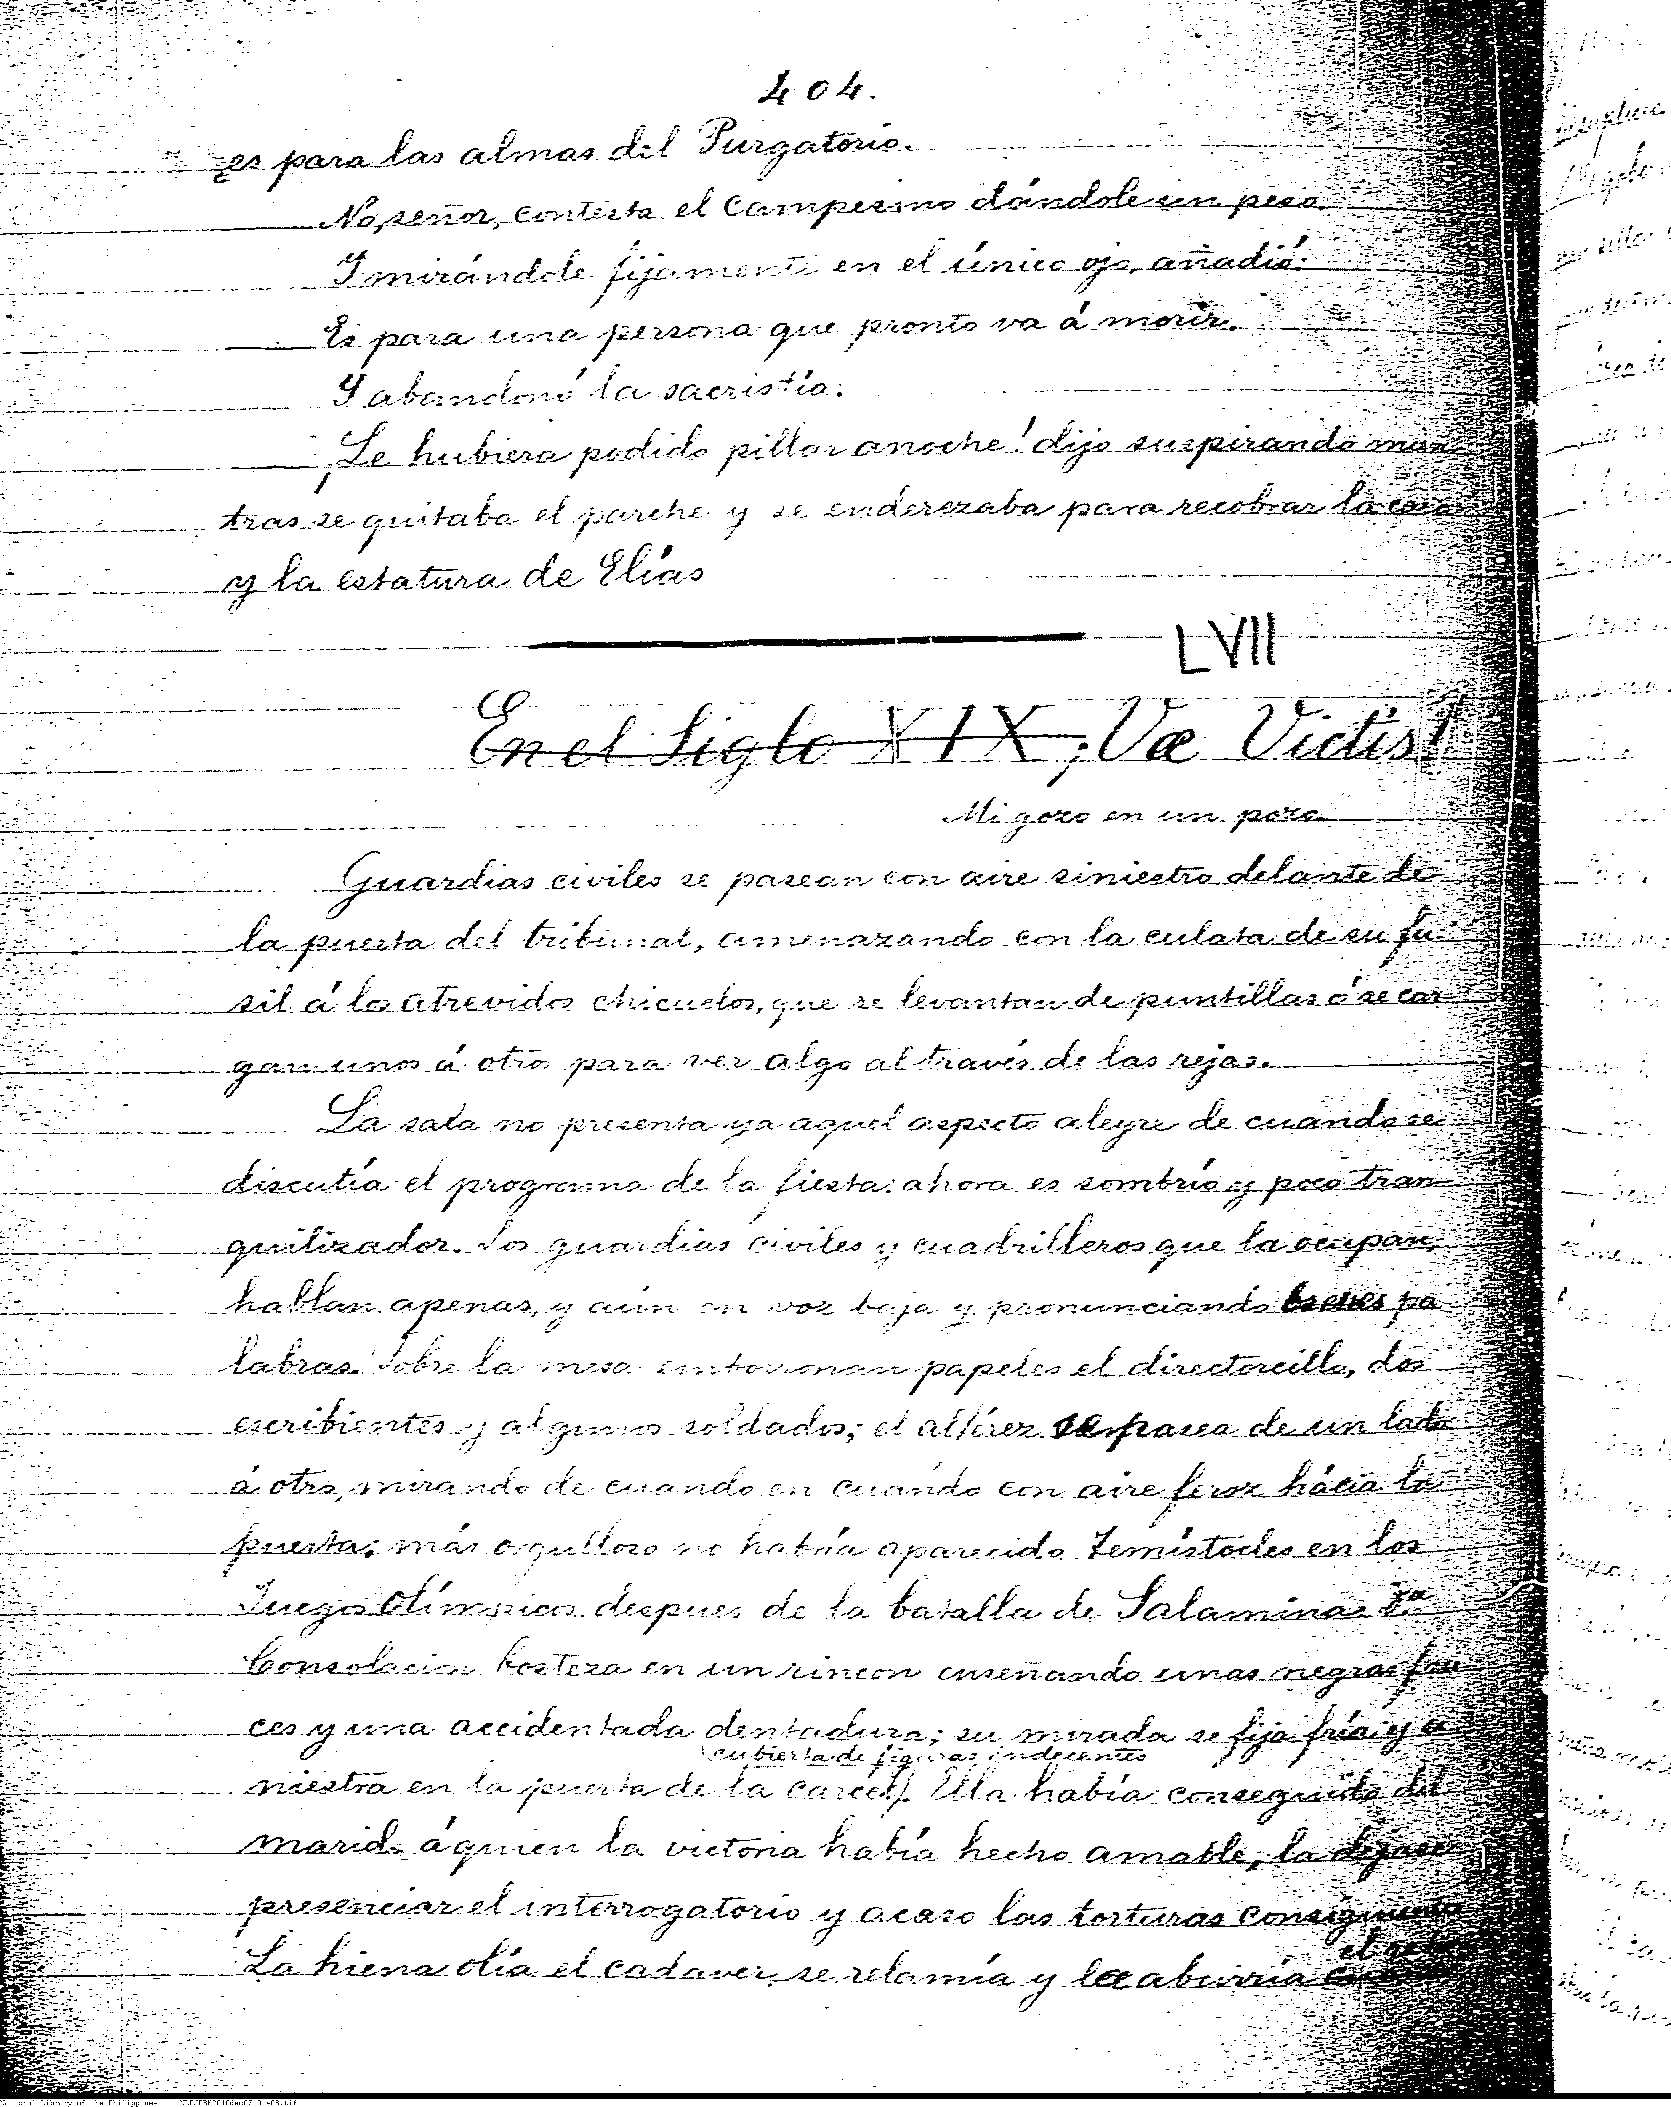 404.
es para las almas del Purgatorio.
No, señor, contesta el campesino dándole un peso
Y mirándole fijamente en el único ojo, añadió:
Es para una persona que pronto va á morir.
Y abandonó la sacristía.
¡Le hubiera podido pillar anoche! dijo suspirando mien
tras se quitaba el parche y se enderezaba para recobrar la cara
y la estatura de Elías
LVII
En el Siglo XIX ¡Væ Victis!
Mi gozo en un pozo
Guardias civiles se pasean con aire siniestro delante de
la puerta del tribunal, amenazando con la culata de su fu
sil á los atrevidos chicuelos, que se levantan de puntillas ó se car
gan unos á otros para ver algo al través de las rejas.
La sala no presenta ya aquel aspecto alegre de cuando se
discutía el programa de la fiesta: ahora es sombrío y poco tran
quilizador. Los guardias civiles y cuadrilleros que la ocupan,
hablan apenas, y aún en voz baja y pronunciando breves pa
labras. Sobre la mesa emborronan papeles el directorcillo, dos
escribientes y algunos soldados; el alférez se pasea de un lado
á otro, mirando de cuando en cuando con aire feroz hácia la
puerta; más orgulloso no había aparecido Temístocles en los
Juegos Olímpicos despues de la batalla de Salamina. Dª
Consolacion bosteza en un rincon enseñando unas negras fau
ces y una accidentada dentadura; su mirada se fija fría y si
cubierta de figuras indecentes
niestra en la puerta de la carcel. Ella había conseguido del
marido á quien la victoria había hecho amable, la dejase
presenciar el interrogatorio y acaso las torturas consiguientes
La hiena olía el cadaver, se relamía y la aburría